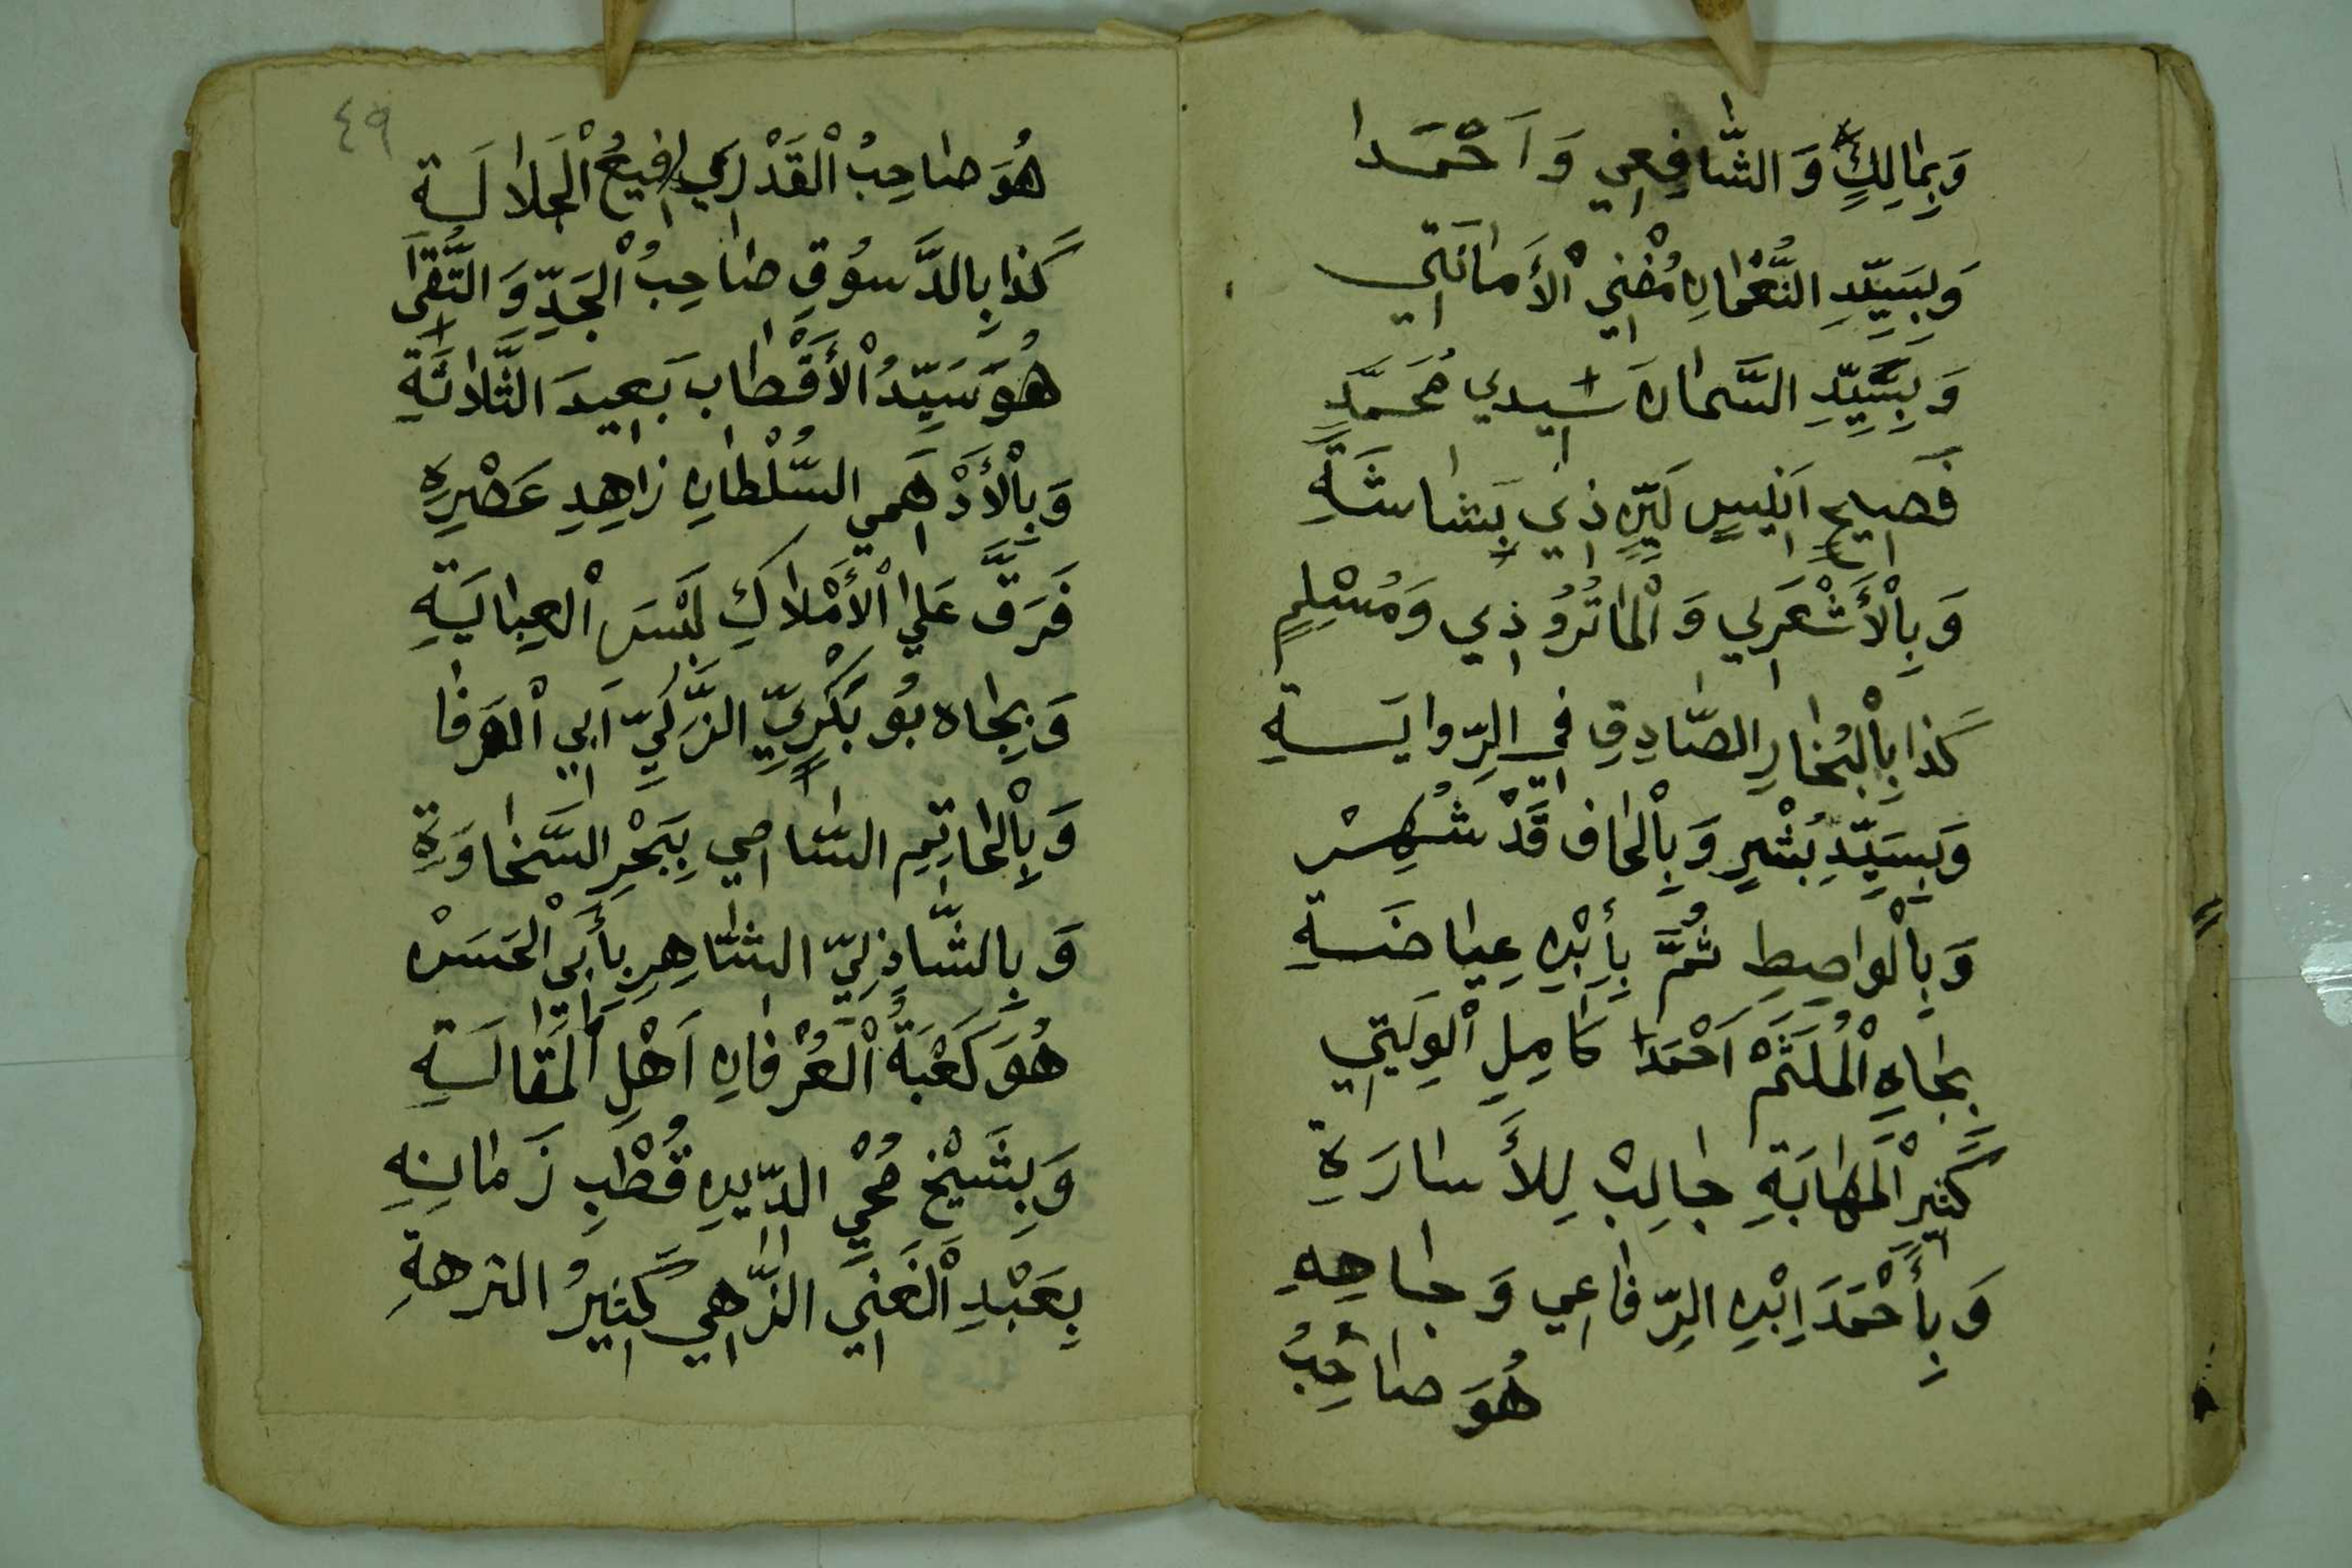 وَبِمَالِكٍ وَالشَّافِعِي وَاَحْمَدَا
وَبِسَيِّدِ النُّعْمَانِ مُفْنِي الْأَمَانَتِي
وَبِسَيِّدِ السَّمَان سَيِيدِي مُحَمَّدٍ
فَصِيحِ اَنِيسٍ لَيِّنٍ ذِي بَشَاشَةِ
وَبِالْأَشْعَرِي وَالْمَاتُرُوذِي وَمُسْلِمٍ
كَذَا بِالْبُخَارِ الصَّادِقِ فِي الرِّوَايَةِ
وَبِسَيِّدِ بُشْرٍ وَبِالْحَاف قَدْ شُهِرْ
وَبِالْوَاصِطِ ثُمَّ بِأَبْنِ عِيَاضَةِ
بِجَاهِ الْمُلَثَّمْ اَحْمَدَا كَامِلِ الْوِلَيَتِي
كَثِيرِ الْمَهَابَةِ جَالِبْ لِلْأَسَارَةِ
وَبِأَحْمَدَ اِبْنِ الرِّفَاعِي وَجَاهِهِ
هُوَ صَاحِبُ
٤٩
هُوَ صَاحِبُ الْقَدْرِي رَفِيعُ الْجَلَالَةِ
كَذَا بِالدَّسُوقِ صَاحِبُ الْجَدِّ وَالتُّقَى
هُوَ سَيِّدُ الْأَقْطَاب بَعِيدَ الثَّلَاثَةِ
وَبِالْأَدْهَمِي السُّلْطَانِ زَاهِدِ عَصْرِهِ
فَرَقَّ عَلَى الْأَمْلَاكِ لَبْسَ الْعِبَايَةِ
وَبِجَاه بُو بَكْرِيِّ الزَّكِيِّ اَبِي الْوَفَا
وَبِالْحَاتِمِ السَّامِي بِبَحْرِ السَّخَاوَةِ
وَبِالشَّاذِلِيِّ الشَّاهِرِ بِأَبِي الْحَسَنْ
هُوَ كَعْبَةُ الْعُرْفَانِ اَهْلِ الْمَقَالَةِ
وَبِشَيْخِ مُحْيِ الدِّينِ قُطْبِ زَمَانِهِ
بِعَبْدِ الْغَنِي الزَّاهِي كَثِيرُ النزهةِ